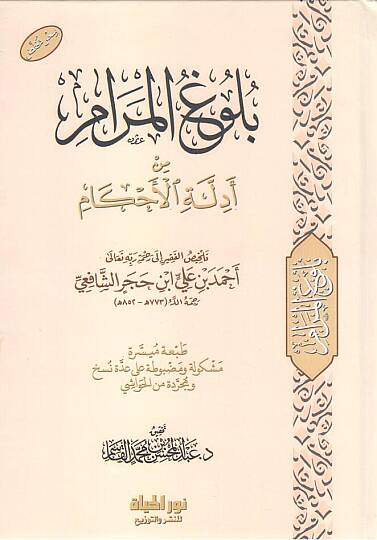 بُلُوغُ المَرَامِ
مِنْ
أَدِلَّةِ الأَحْكَامِ
تلخيص الفقير إلى رحمة ربه تعالى
أَحْمَدَ بْنِ عَلِيِّ ابْنِ حَجَرٍ الشَّافِعِيِّ
رحمه الله (٧٧٣هـ - ٨٥٢هـ)
طبعة ميسرة
مشكولة ومضبوطة على عدة نسخ
ومجردة من الحواشي
تحقيق
د. عبد المحسن بن محمد القاسم
نور الحياة
للنشر والتوزيع
بلوغ المرام